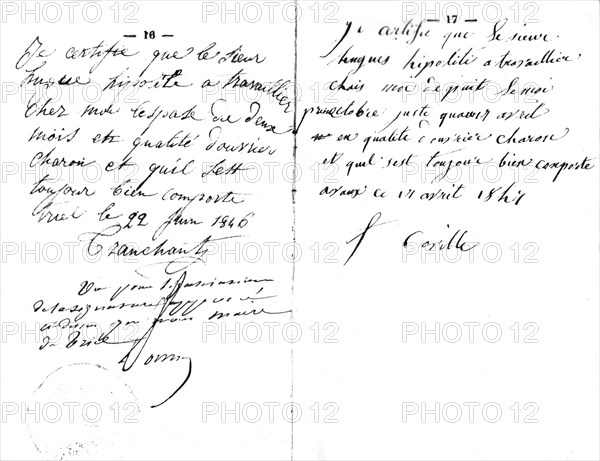 — 16 —
Je certifie que le sieur
hugue hippolite a travaillier
Chez moi lespase de deux
mois en qualité douvrier
Charon et quil sest
toujour bien comporte
triel le 22 Juin 1846
Tranchant
Vu pour légalisation
de la signature apposée
ci dessus par nous maire
de Triel
— 17 —
Je certifie que le sieur
hugues hipolité a travaillier
chais moi depuit le moi
juste quaux avril
en qualité douvrier charon
et quil sest toujour bien comporte
ce 17 avril 1847
Coville
PHOTO 12